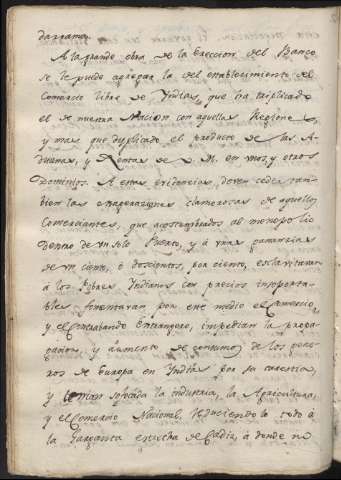 darramos.
A la grande obra de la Ereccion del Banco
se le puede agregar la del establecimiento del
Comercio libre de Yndias, que ha triplicado
el de nuestra Nacion con aquellas Regiones
y mas que duplicado el producto de las A-
duanas, y Rentas de V. M. en unos, y otros
Dominios. A estas evidencias, deven ceder tam-
bien las exageraciones clamorosas de aquellos
Comerciantes, que acostumbrados al monopolio
dentro de un solo Puerto, y á unas ganancias
de un ciento, ó doscientos, por ciento, esclavizavan
á los Pobres Yndianos con precios insoporta-
bles fomentavan por este medio el Comercio
y el contrabando Extrangero, impedian la propa-
gacion, y aumento de consumos de los gene-
ros de Europa en Yndias por su carestia,
y tenian sofocada la industria, la Agricultura,
y el Comercio Nacional, reduciendolo todo á
la Garganta estrecha de Cadiz, á donde no